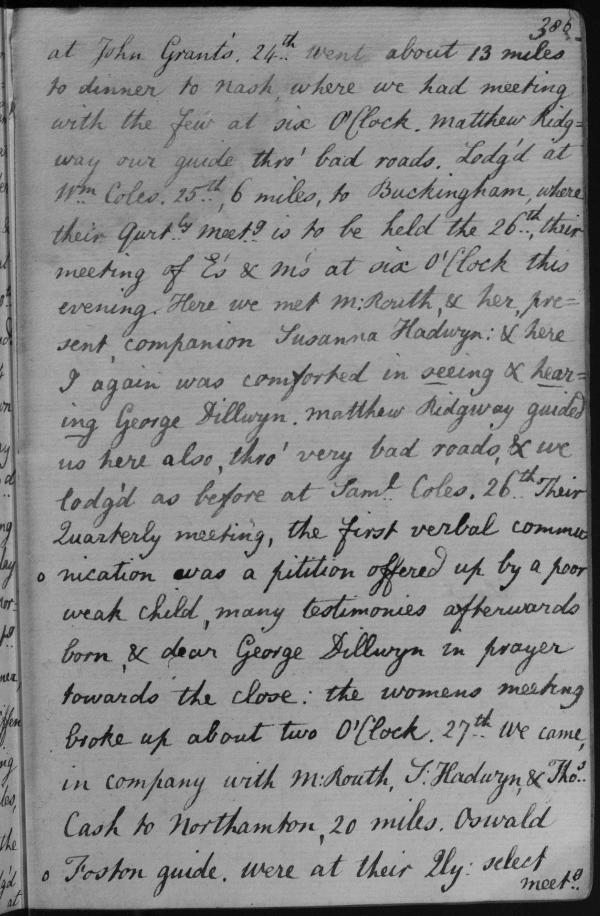 386
at John Grant's. 24th went about 13 miles
to dinner to Nash, where we had meeting
with the few at six O'Clock. Matthew Ridg=
way our guide thro' bad roads. Lodg'd at
Wm Coles. 25th, 6 miles, to Buckingham, where
their Qurtly meetg is to be held the 26th, their
meeting of E's & M's at six O'Clock this
evening. Here we met M: Routh, & her, pre=
sent, companion Susanna Hadwyn: & here
I again was comforted in seeing & hear=
ing George Dillwyn. Matthew Ridgway guided
us here also, thro' very bad roads, & we
lodg'd as before at Saml Coles. 26th Their
Quarterly meeting, the first verbal commu
o nication was a pitition offered up by a poor
weak child, many testimonies afterwards
born, & dear George Dillwyn in prayer
towards the close: the womens meeting
broke up about two O'Clock. 27th We came,
in company with M: Routh, S: Hadwyn, & Thos
Cash to Northamton, 20 miles. Oswald
o Foston guide. were at their Qly: select
meetg